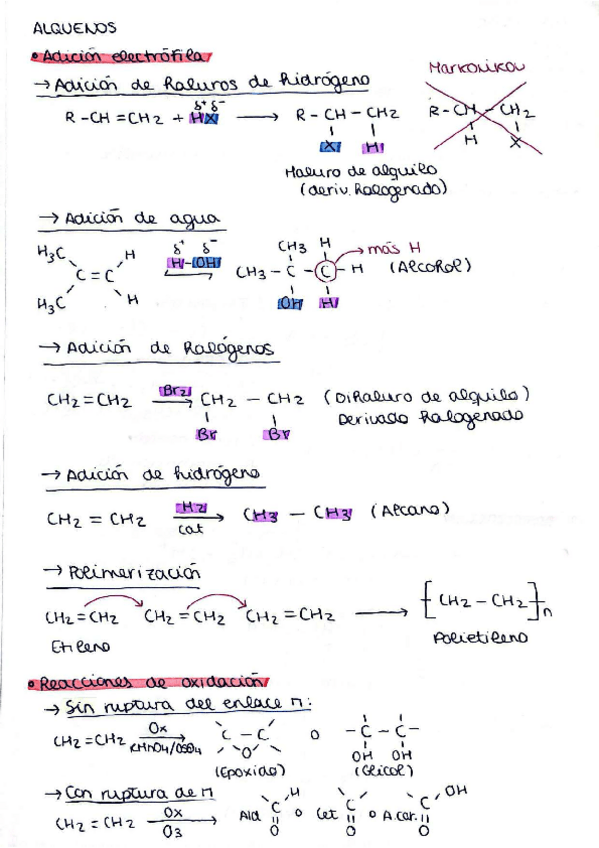 ALQUENOS
• Adición electrófila
→ Adición de haluros de hidrógeno
Markonikov
δ+ δ-
R-CH=CH2 + HX → R-CH-CH2
X H
R-CH-CH2
H X
Haluro de alquilo
(deriv. halogenado)
→ Adición de agua
H3C H
C=C
H3C H
δ+ δ-
H-OH
CH3 H
CH3-C-C-H
OH H
→ más H
(Alcohol)
→ Adición de halógenos
CH2=CH2 Br2 → CH2-CH2 (Dihaluro de alquilo)
Br Br Derivado halogenado
→ Adición de hidrógeno
CH2=CH2 H2 → CH3-CH3 (Alcano)
cat
→ Polimerización
CH2=CH2 CH2=CH2 CH2=CH2 → [CH2-CH2]n
Etileno Polietileno
• Reacciones de oxidación
→ Sin ruptura del enlace π:
CH2=CH2 Ox → C-C o -C-C-
KMnO4/OsO4 O OH OH
(Epoxido) (Glicol)
→ Con ruptura de π
H OH
CH2=CH2 Ox → Ald C o Cet C o A.car. C
O3 O O O